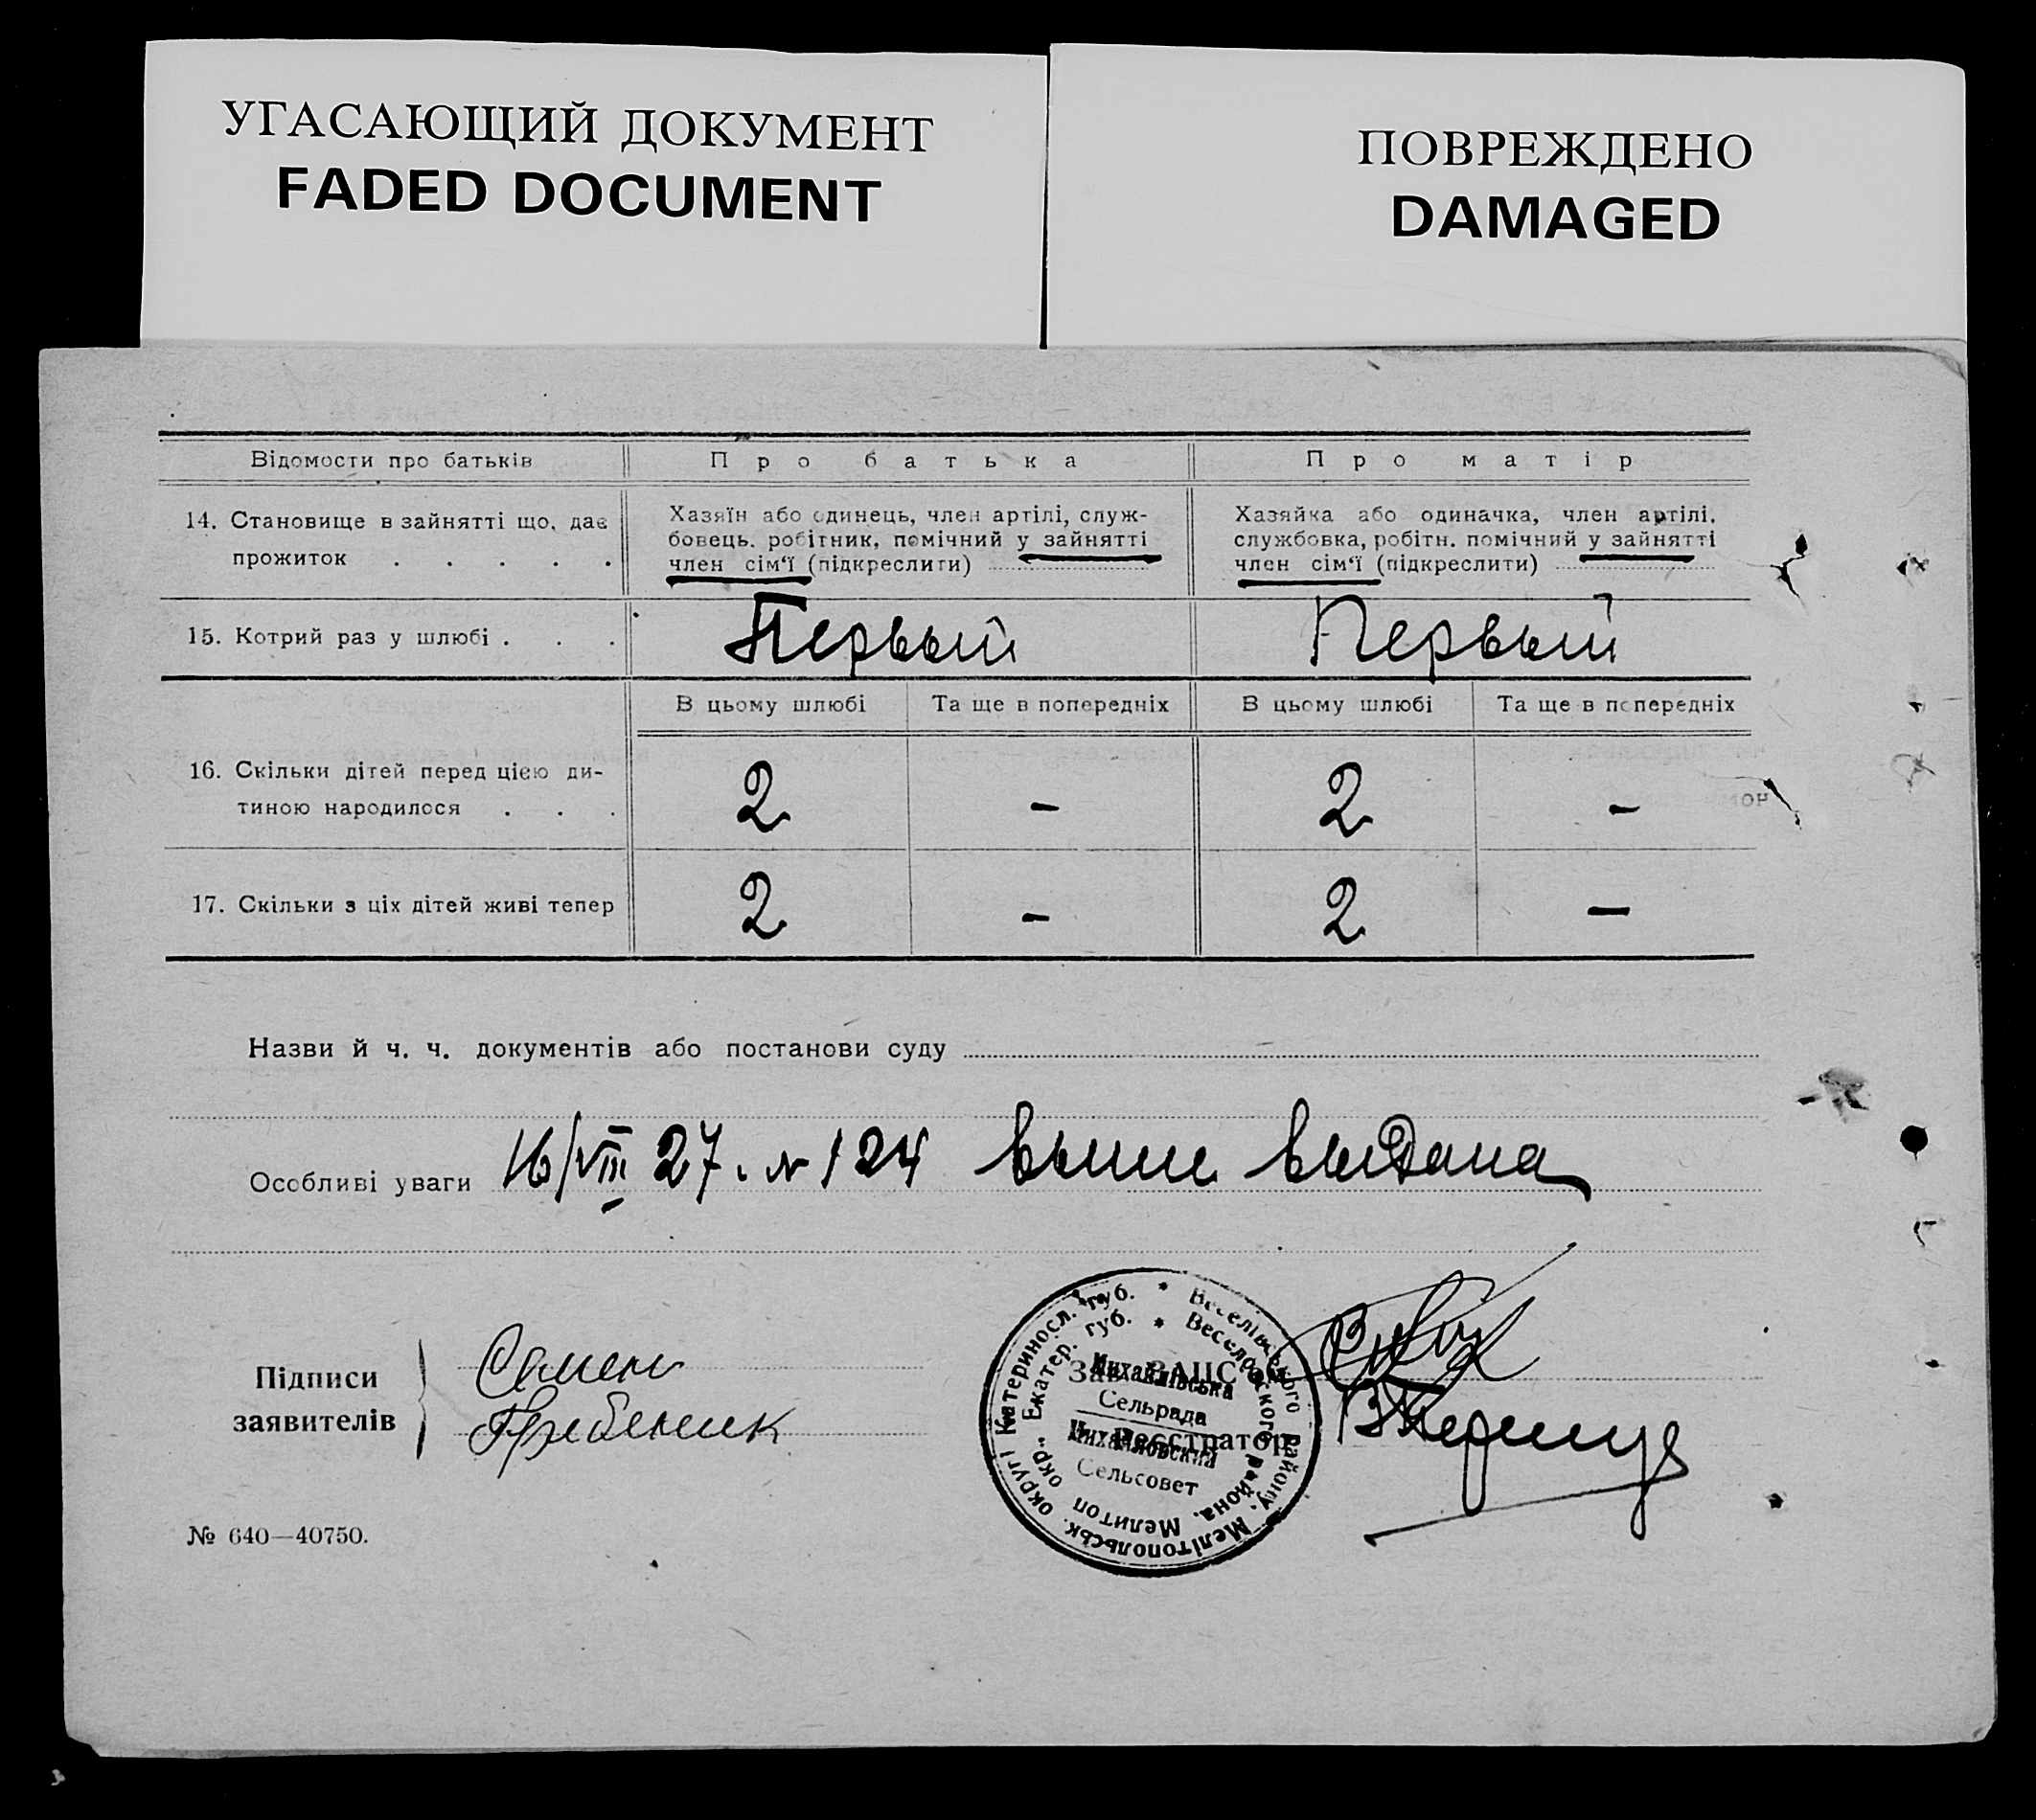 УГАСАЮЩИЙ ДОКУМЕНТ
FADED DOCUMENT
ПОВРЕЖДЕНО
DAMAGED
Відомости про батьків Про батька Про матір
14. Становище в зайнятті що, дає прожиток . . . . .
Хазяїн або одинець, член артілі, служ-
бовець, робітник, помічний у зайнятті
член сім‘ї (підкреслити)
Хазяйка або одиначка, член артілі,
службовка, робітн. помічний у зайнятті
член сім‘ї (підкреслити)
15. Котрий раз у шлюбі . . . Первый Первый
В цьому шлюбі Та ще в попередніх В цьому шлюбі Та ще в попередніх
16. Скільки дітей перед цією ди-
тиною народилося . . . 2 - 2 -
17. Скільки з ціх дітей живі тепер 2 - 2 -
Назви й ч. ч. документів або постанови суду
Особливі уваги 16/VIII 27. № 124 выпис выдана
Підписи
заявителів
Семен
Гребеник
Катериносл. губ. * Веселівського району, Мелітопольськ. округі
Екатер. губ. * Веселовского района, Мелитоп окр.
Михайлівська
Сельрада
Михайловский
Сельсовет
Зав. ЗАГС‘ом
Реєстратор
№ 640—40750.